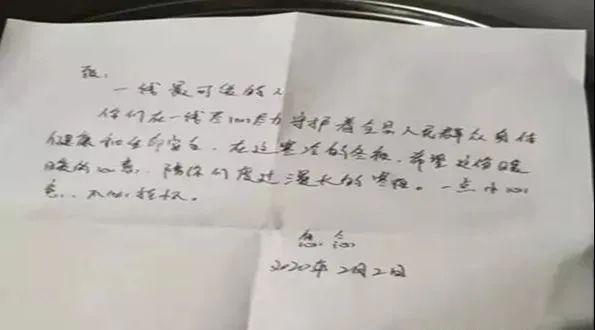 致:
一线最可爱的人
你们在一线尽心尽力守护着全县人民群众身体
健康和生命安全,在这寒冷的冬夜,希望这份暖
暖的心意,陪你们度过漫长的寒夜。一点小心
意,不成敬
2020年2月2日